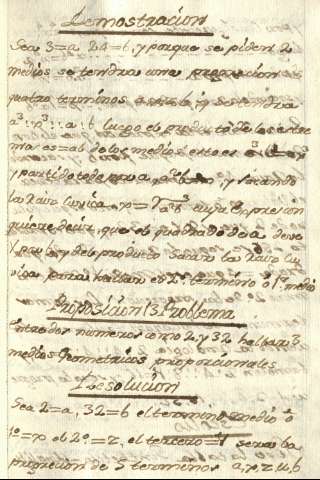 Demostracion
Sea 3=a 24=b, y porque se piden 2
medios se tendra una progrecion de
quatro terminos
a³: x³:: a: b luego el producto de los estre
mos es=ab de los medios esto es
y partido todo por a, y sacando
la raiz cuvica x=
quiere decir, que el quadrado de a deve
x por b, y del producto sacar la raiz cu
vica para hallar el 2º termino ò 1º medio
Proposicion 3. Problema
Entre dos numeros como 2 y 32 hallar 3
medios Geometricos proporcionales
Resolucion
Sea 2=a, 32=b el termino medio ò
1º=x el 2º=z, el tercero=u sera la
progrecion de 5 terminos a, x, z, u, b